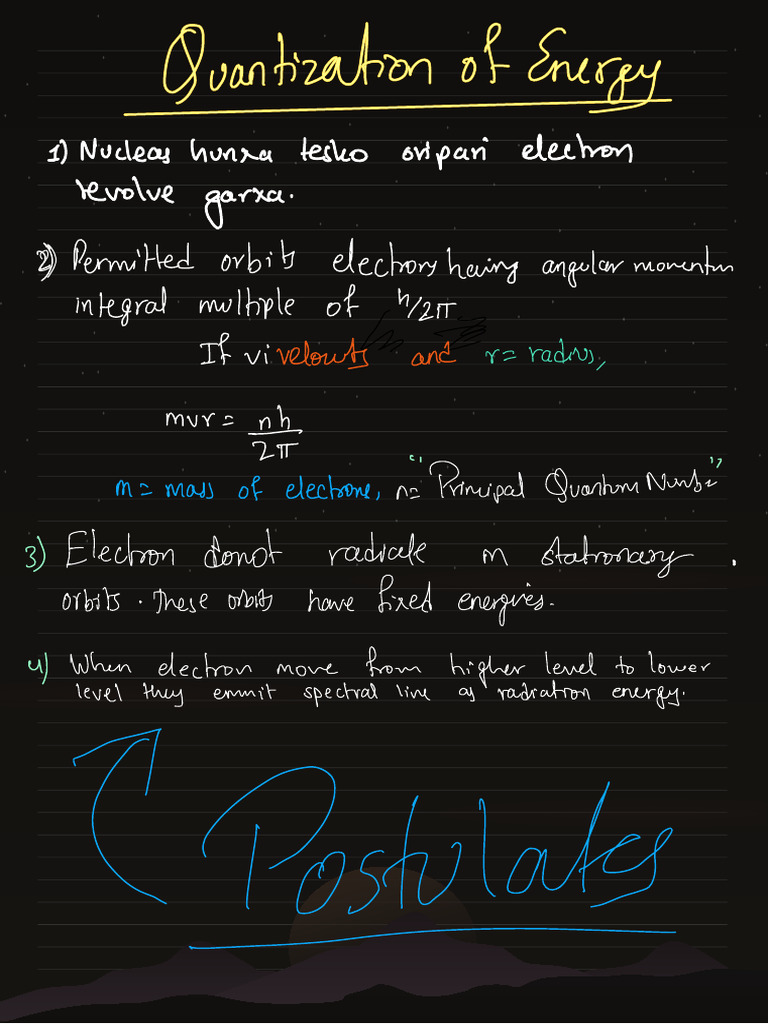 Quantization of Energy
1) Nucleas hunxa tesko oripari electron
revolve garxa.
2) Permitted orbits electrons having angular momentum
integral multiple of h/2π
If vi velocity and r = radius,
mvr = nh/2π
m = mass of electrone, n = "Principal Quantum Number"
3) Electron donot radiate in stationary .
orbits. These orbits have fixed energies.
4) When electron move from higher level to lower
level they emmit spectral line as radiation energy.
Postulates